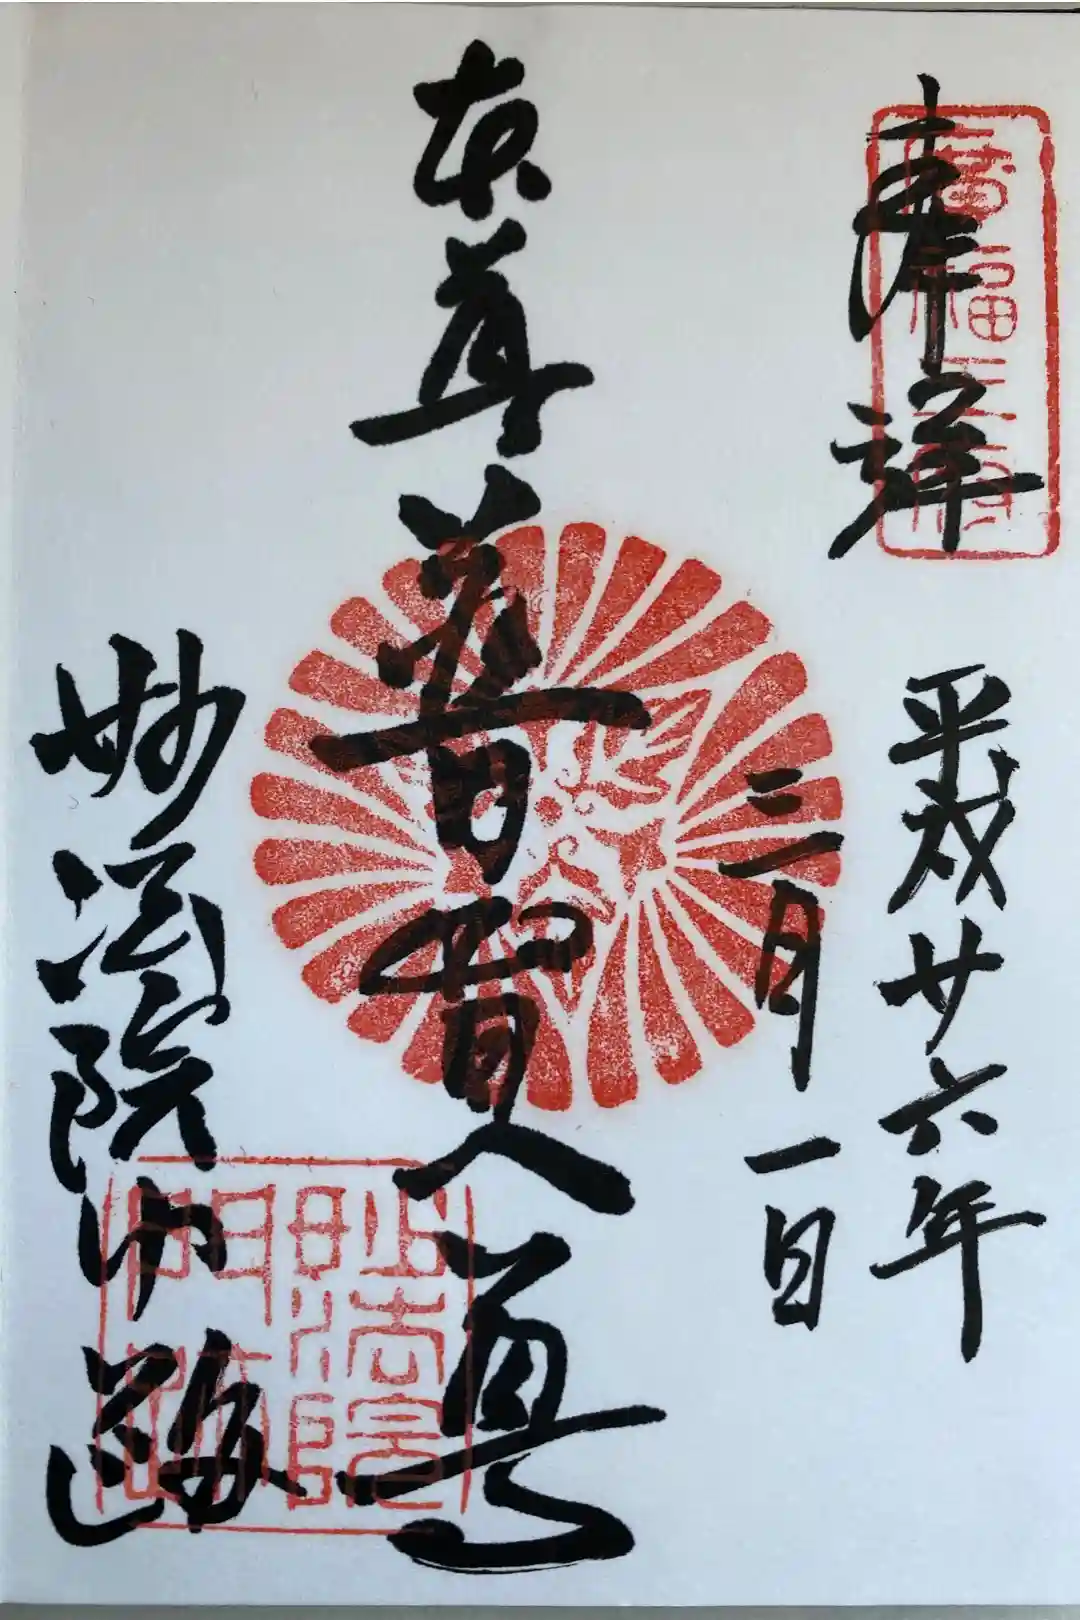 奉拝
平成廿六年
三月一日
本尊普賢尊
妙法院門跡
妙法院
門跡